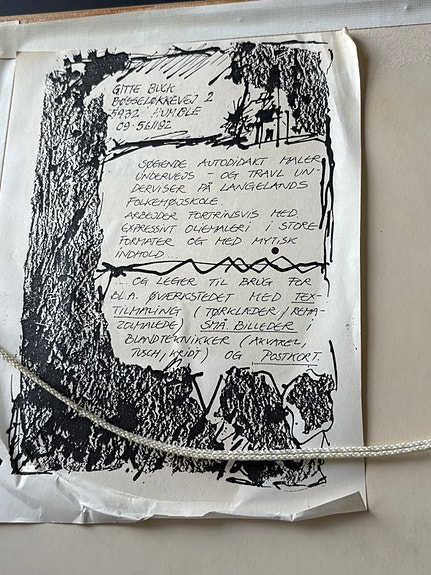 GITTE BUCK
BØSSELØKKEVEJ 2
5932 HUMBLE
09-561192
SØGENDE AUTODIDAKT MALER
UNDERVEJS - OG TRAVL UN-
DERVISER PÅ LANGELANDS
FOLKEHØJSKOLE.
ARBEJDER FORTRINSVIS MED
EXPRESSIVT OLIEMALERI I STORE
FORMATER OG MED MYTISK
INDHOLD...
... OG LEGER TIL BRUG FOR
BL.A. ØVERKSTEDET MED TEX-
TILMALING (TØRKLÆDER / REMA-
ZOLMALEDE) SMÅ BILLEDER I
BLANDTEKNIKKER (AKVAREL,
TUSCH, KRIDT) OG POSTKORT.